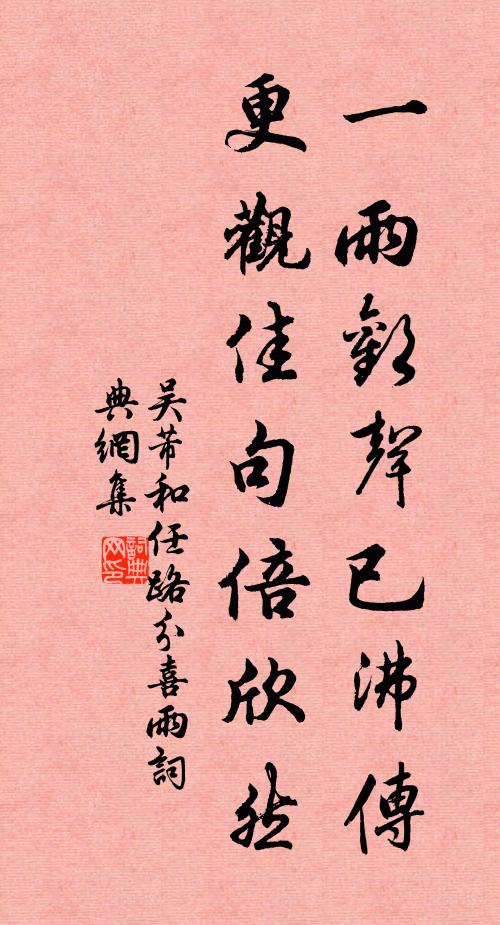 一雨歡聲已沸傳
更觀佳句倍欣然
吴芾和任路分喜雨詞
典網集
詞典網印